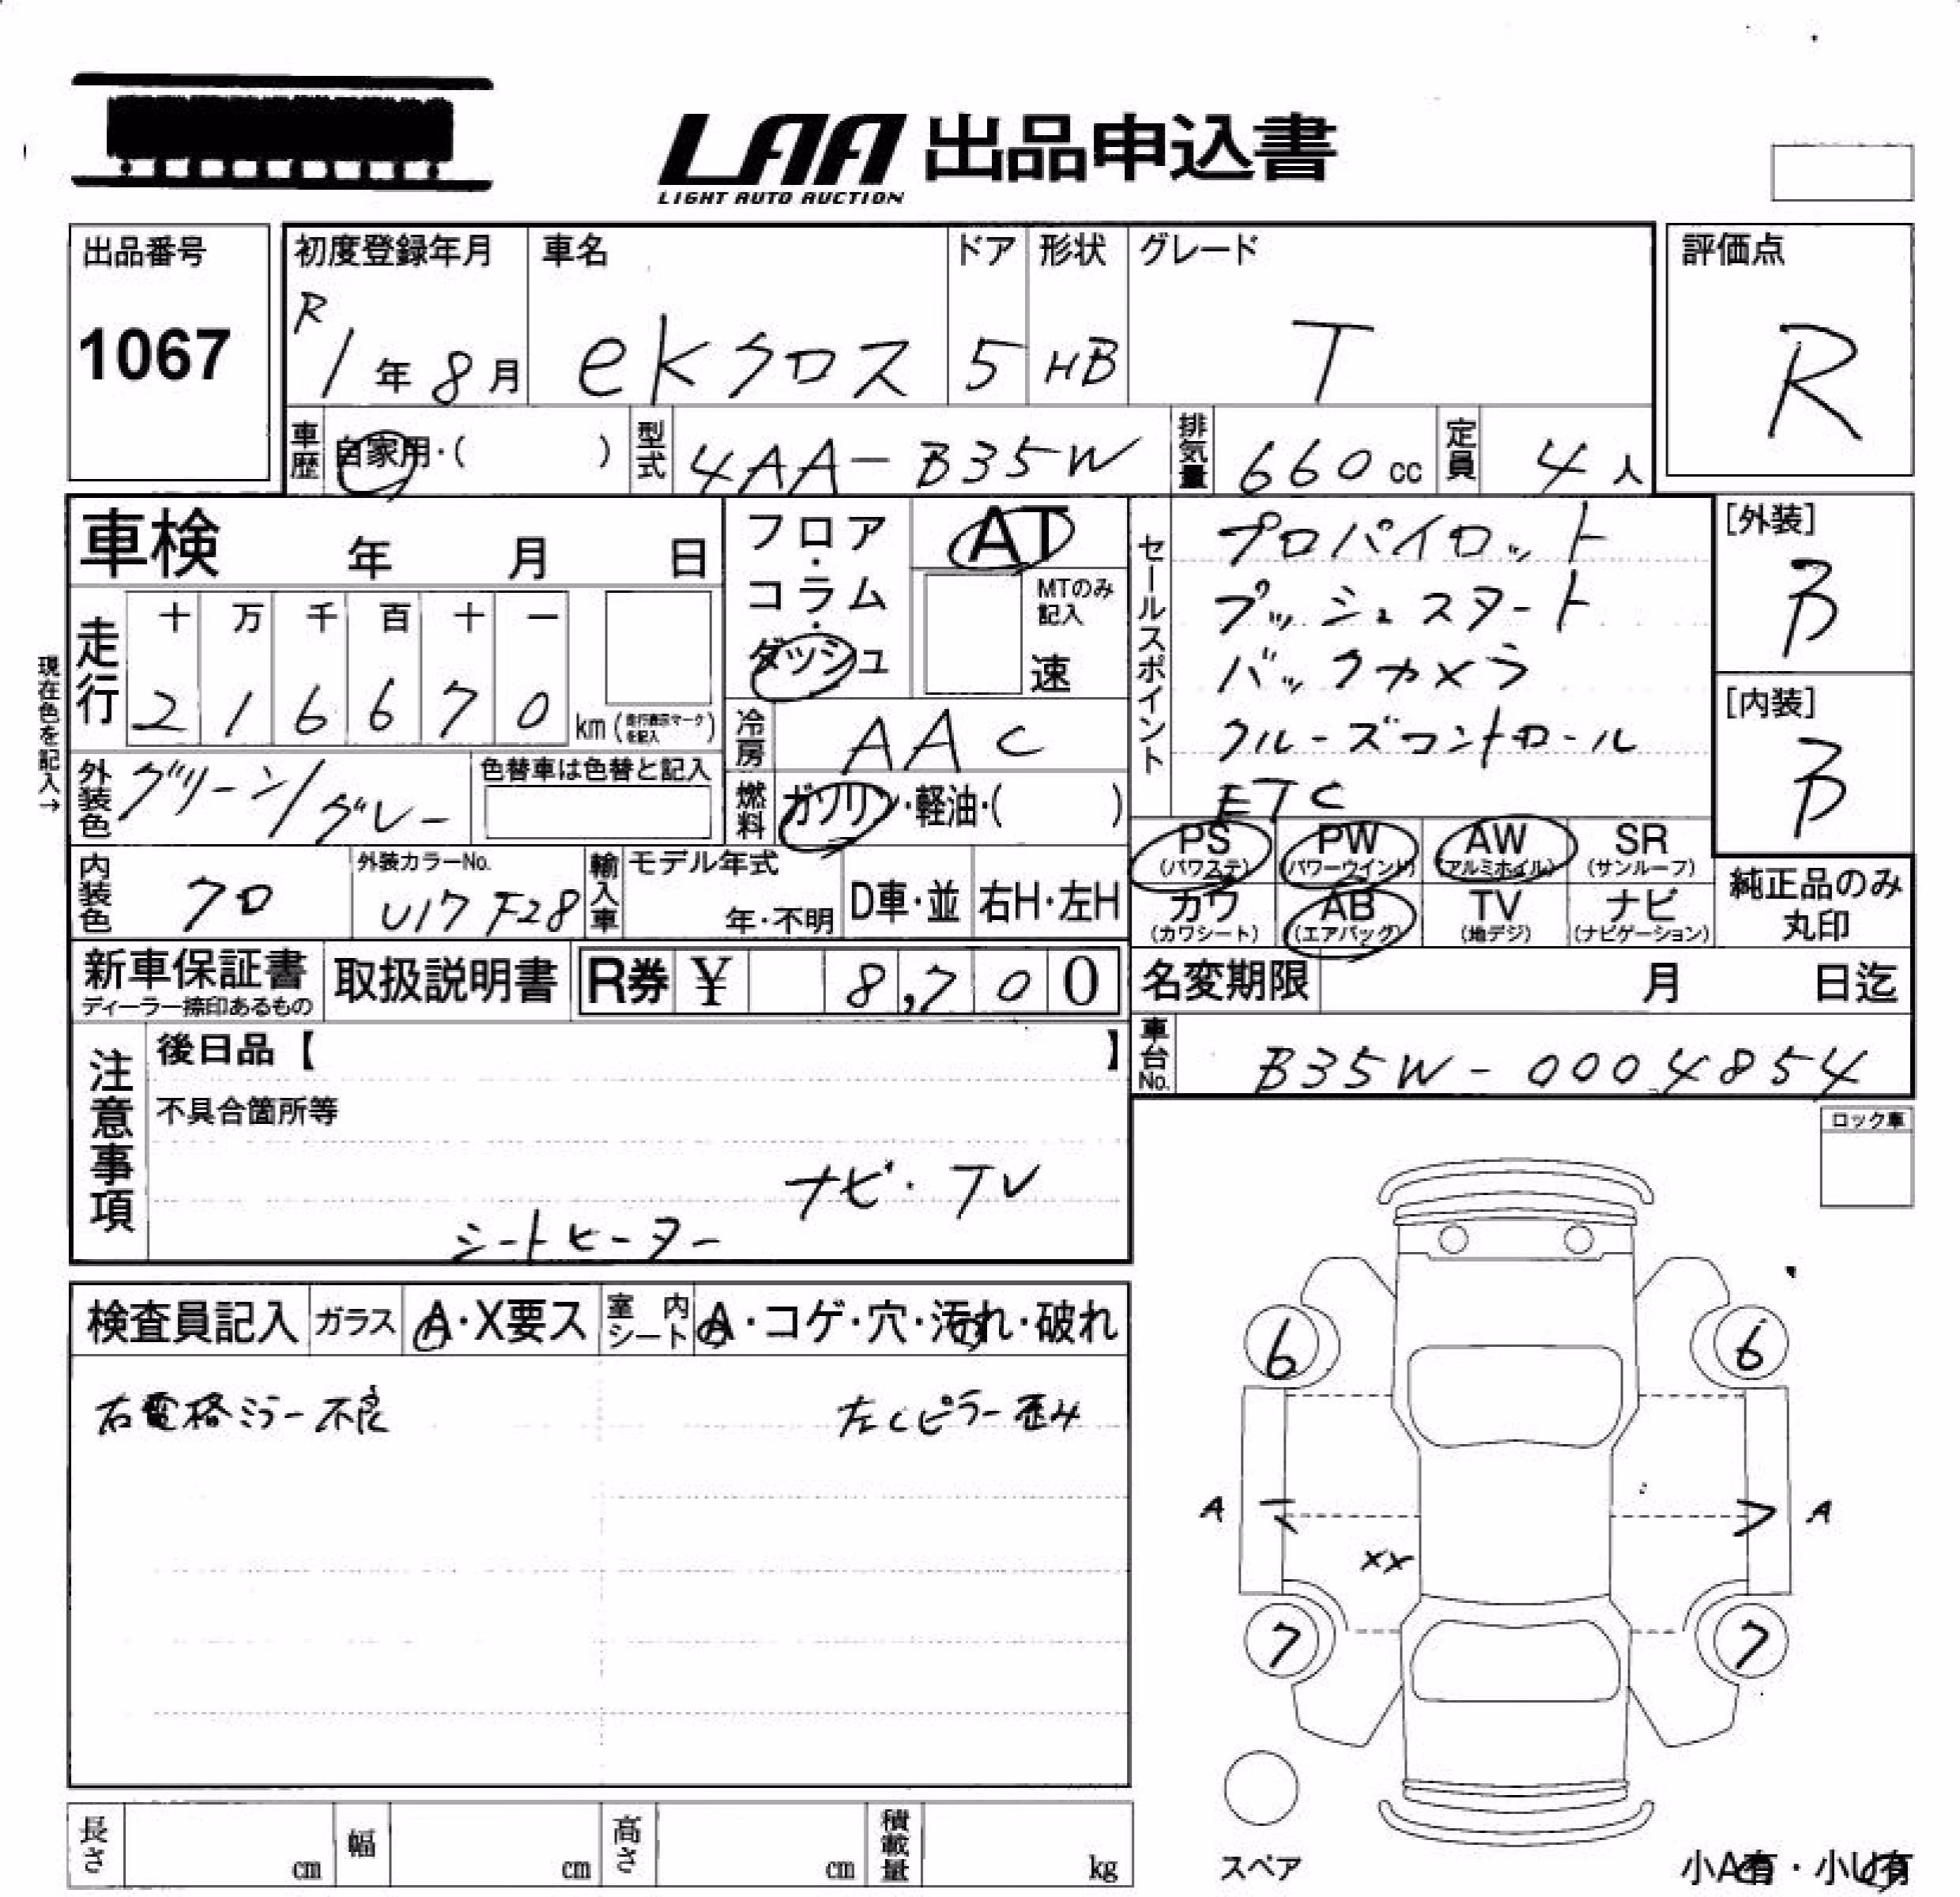 LAA 出品申込書
LIGHT AUTO AUCTION
出品番号
1067
初度登録年月
R1年8月
車名
eKクロス
ドア
5
形状
HB
グレード
T
評価点
R
車歴
自家用・( )
型式
4AA-B35W
排気量
660cc
定員
4人
車検 年 月 日
現在色を記入→
走行
十 万 千 百 十 一
2 1 6 6 7 0 km (走行表示マークを記入)
フロア・コラム・ダッシュ
AT
MTのみ記入
速
冷房
AAC
燃料
ガソリン・軽油・( )
セールスポイント
プロパイロット
プッシュスタート
バックカメラ
クルーズコントロール
ETC
[外装]
B
[内装]
B
外装色
グリーン/グレー
色替車は色替と記入
内装色
クロ
外装カラーNo.
U17 F28
輸入車
モデル年式
年・不明
D車・並
右H・左H
PS (パワステ)
PW (パワーウインド)
AW (アルミホイル)
SR (サンルーフ)
カワ (カワシート)
AB (エアバッグ)
TV (地デジ)
ナビ (ナビゲーション)
純正品のみ丸印
新車保証書
ディーラー捺印あるもの
取扱説明書
R券 ¥ 8,700
名変期限 月 日迄
車台No.
B35W-0004854
注意事項
後日品【 】
不具合箇所等
ナビ・TV
シートヒーター
ロック車
検査員記入
ガラス
A・X要ス
室内シート
A・コゲ・穴・汚れ・破れ
右電格ミラー不良
左Cピラー歪み
6 6
A A
XX
7 7
スペア
長さ cm
幅 cm
高さ cm
積載量 kg
小A有・小U有